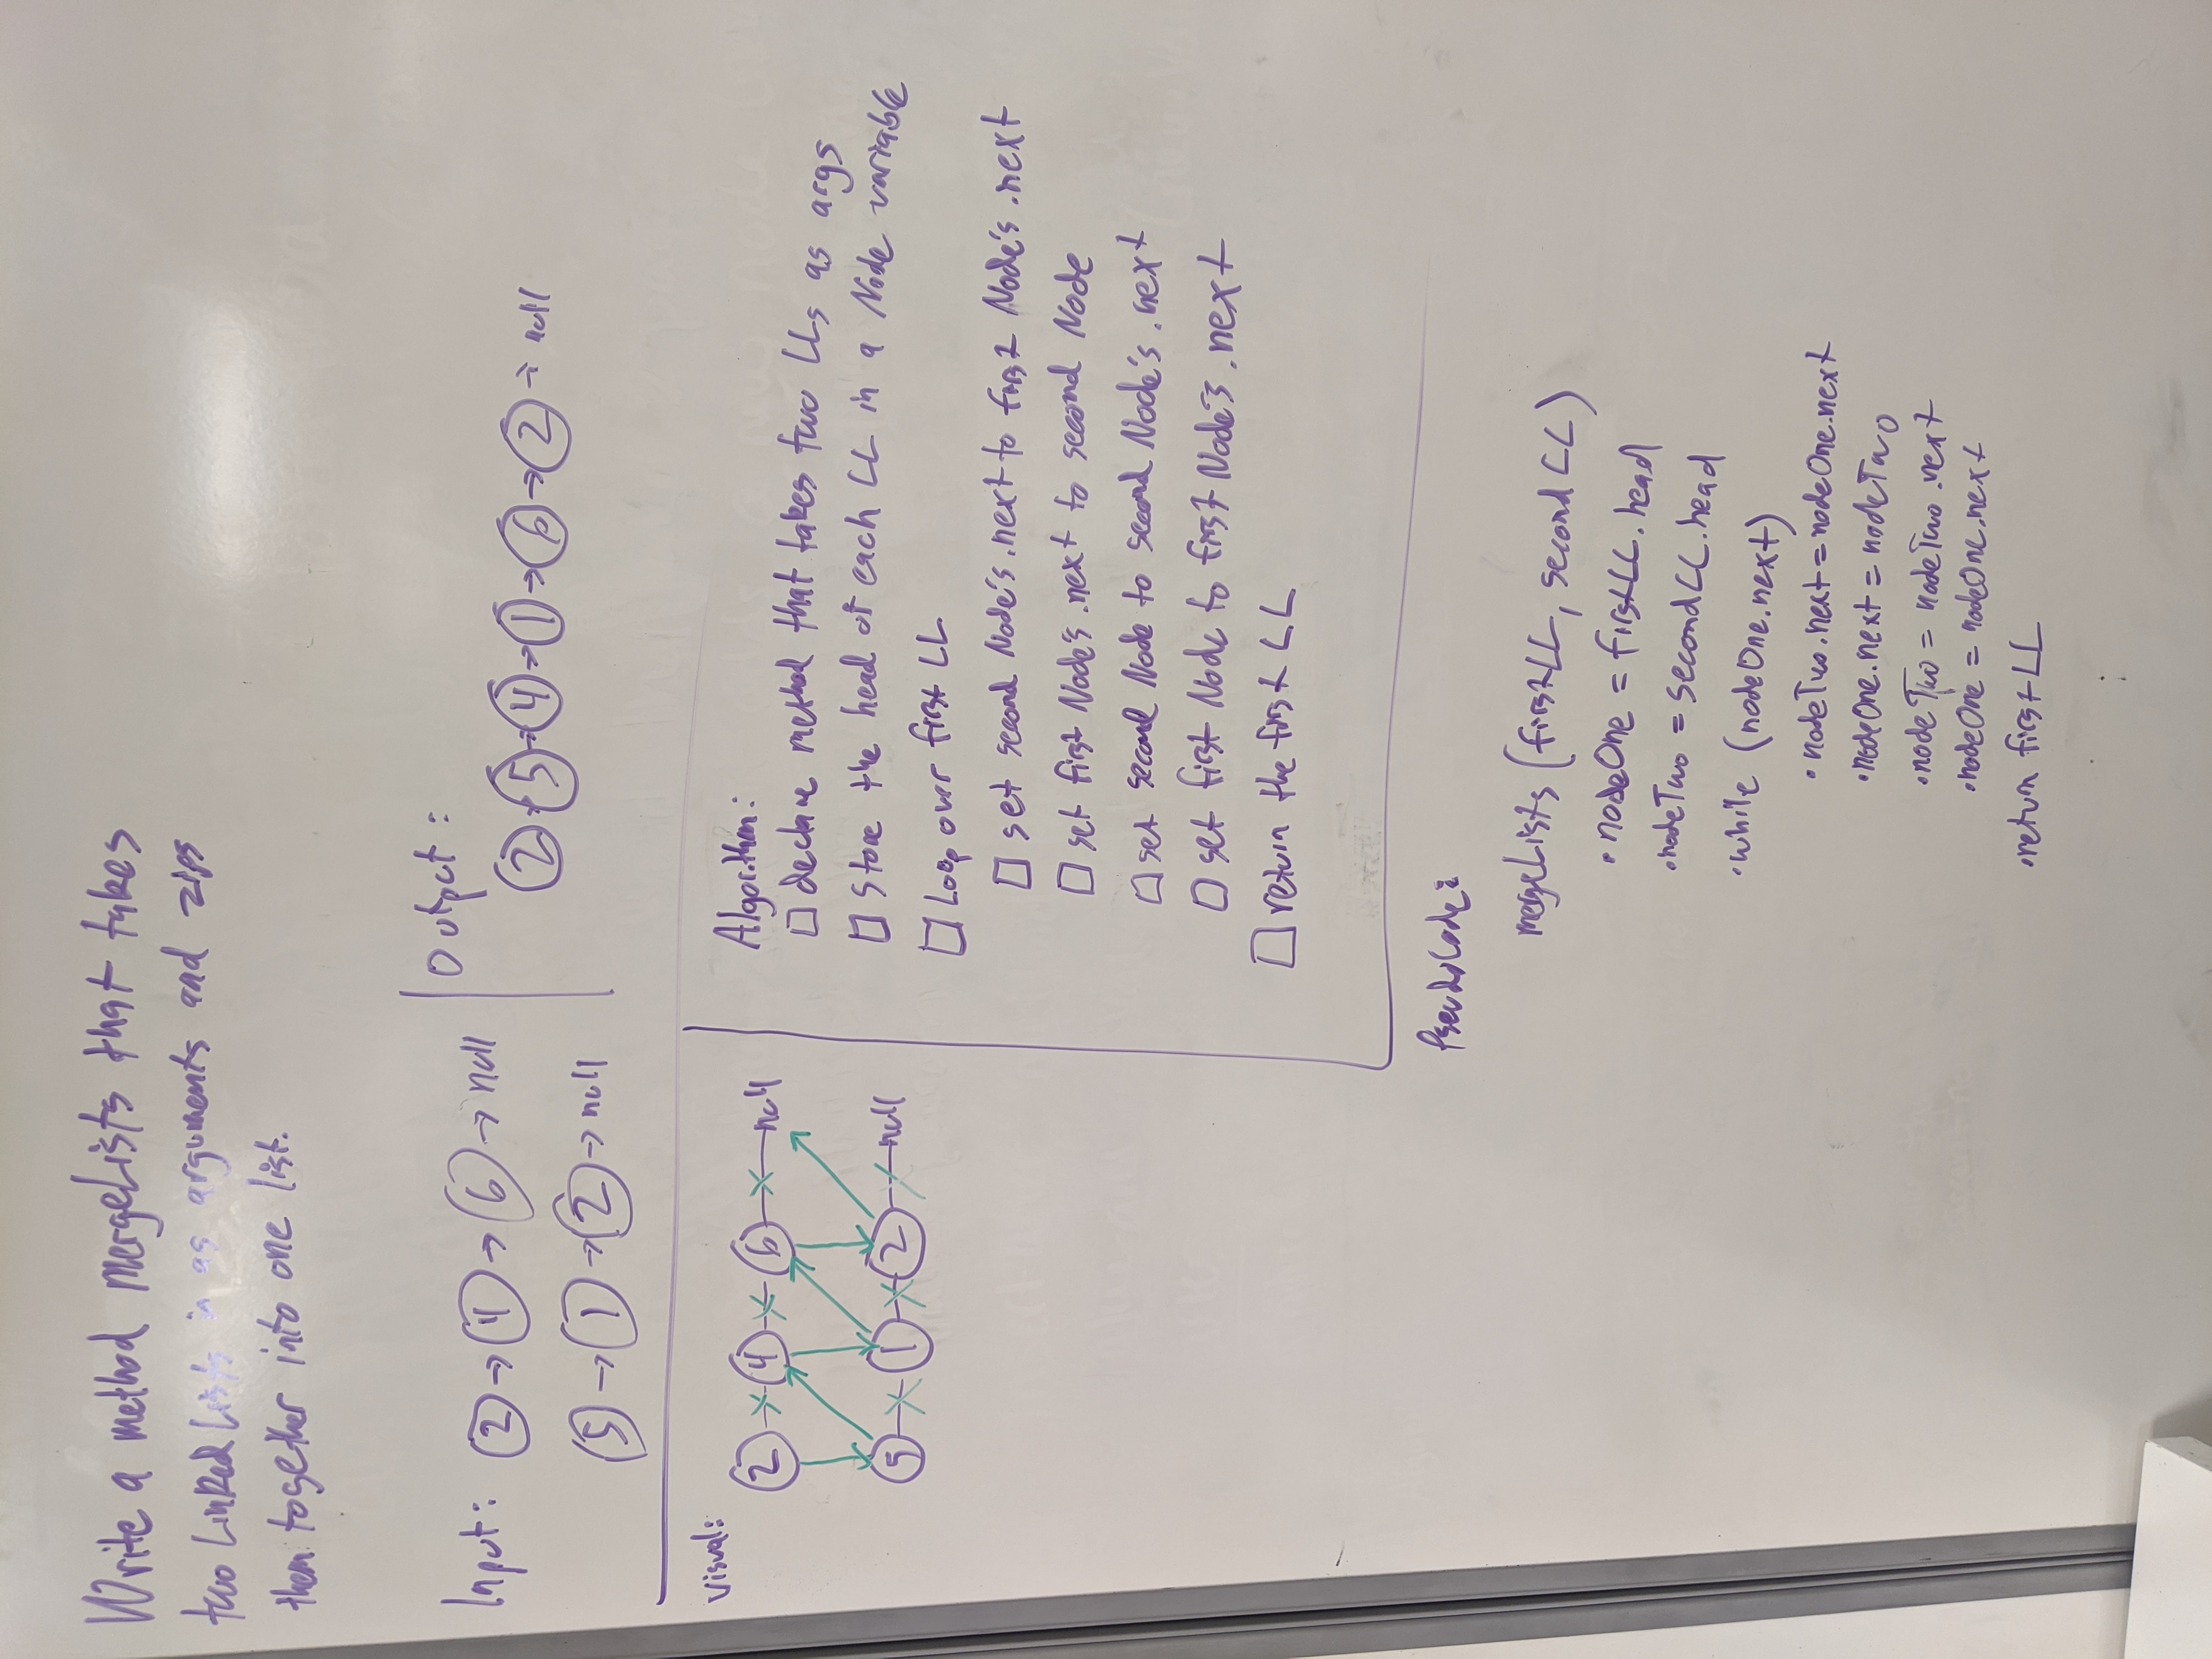 Write a method mergeLists that takes
two Linked Lists in as arguments and zips
them together into one list.
Input: 2 → 4 → 6 → null
5 → 1 → 2 → null
Output:
2 → 5 → 4 → 1 → 6 → 2 → null
Visual:
2 4 6 null
5 1 2 null
Algorithm:
□ declare method that takes two LLs as args
□ Store the head of each LL in a Node variable
□ Loop over first LL
□ set second Node's .next to first Node's .next
□ set first Node's .next to second Node
□ set second Node to second Node's .next
□ set first Node to first Node's .next
□ return the first LL
PseudoCode:
mergeLists (firstLL, secondLL)
• nodeOne = firstLL.head
• nodeTwo = secondLL.head
• while (nodeOne.next)
• nodeTwo.next = nodeOne.next
• nodeOne.next = nodeTwo
• nodeTwo = nodeTwo.next
• nodeOne = nodeOne.next
• return firstLL